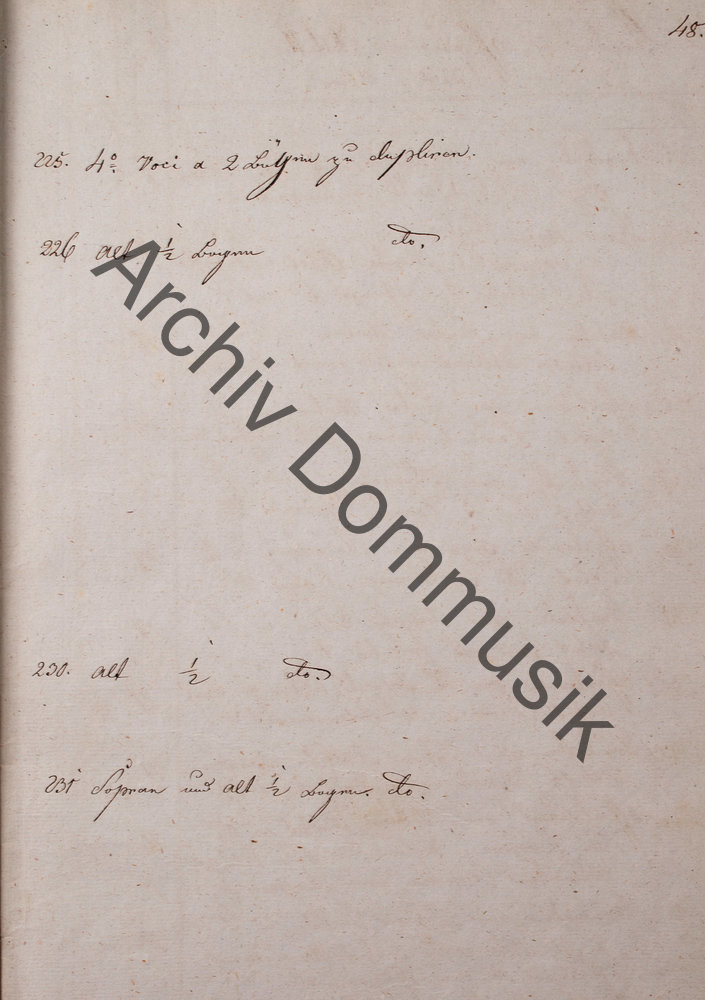 48.
225. 4º Voci a 2 zu dupliren.
226 Alt à ½ Bogen do.
230. Alt à ½ do.
231 Sopran und Alt à ½ Bogen. do.
Archiv Dommusik